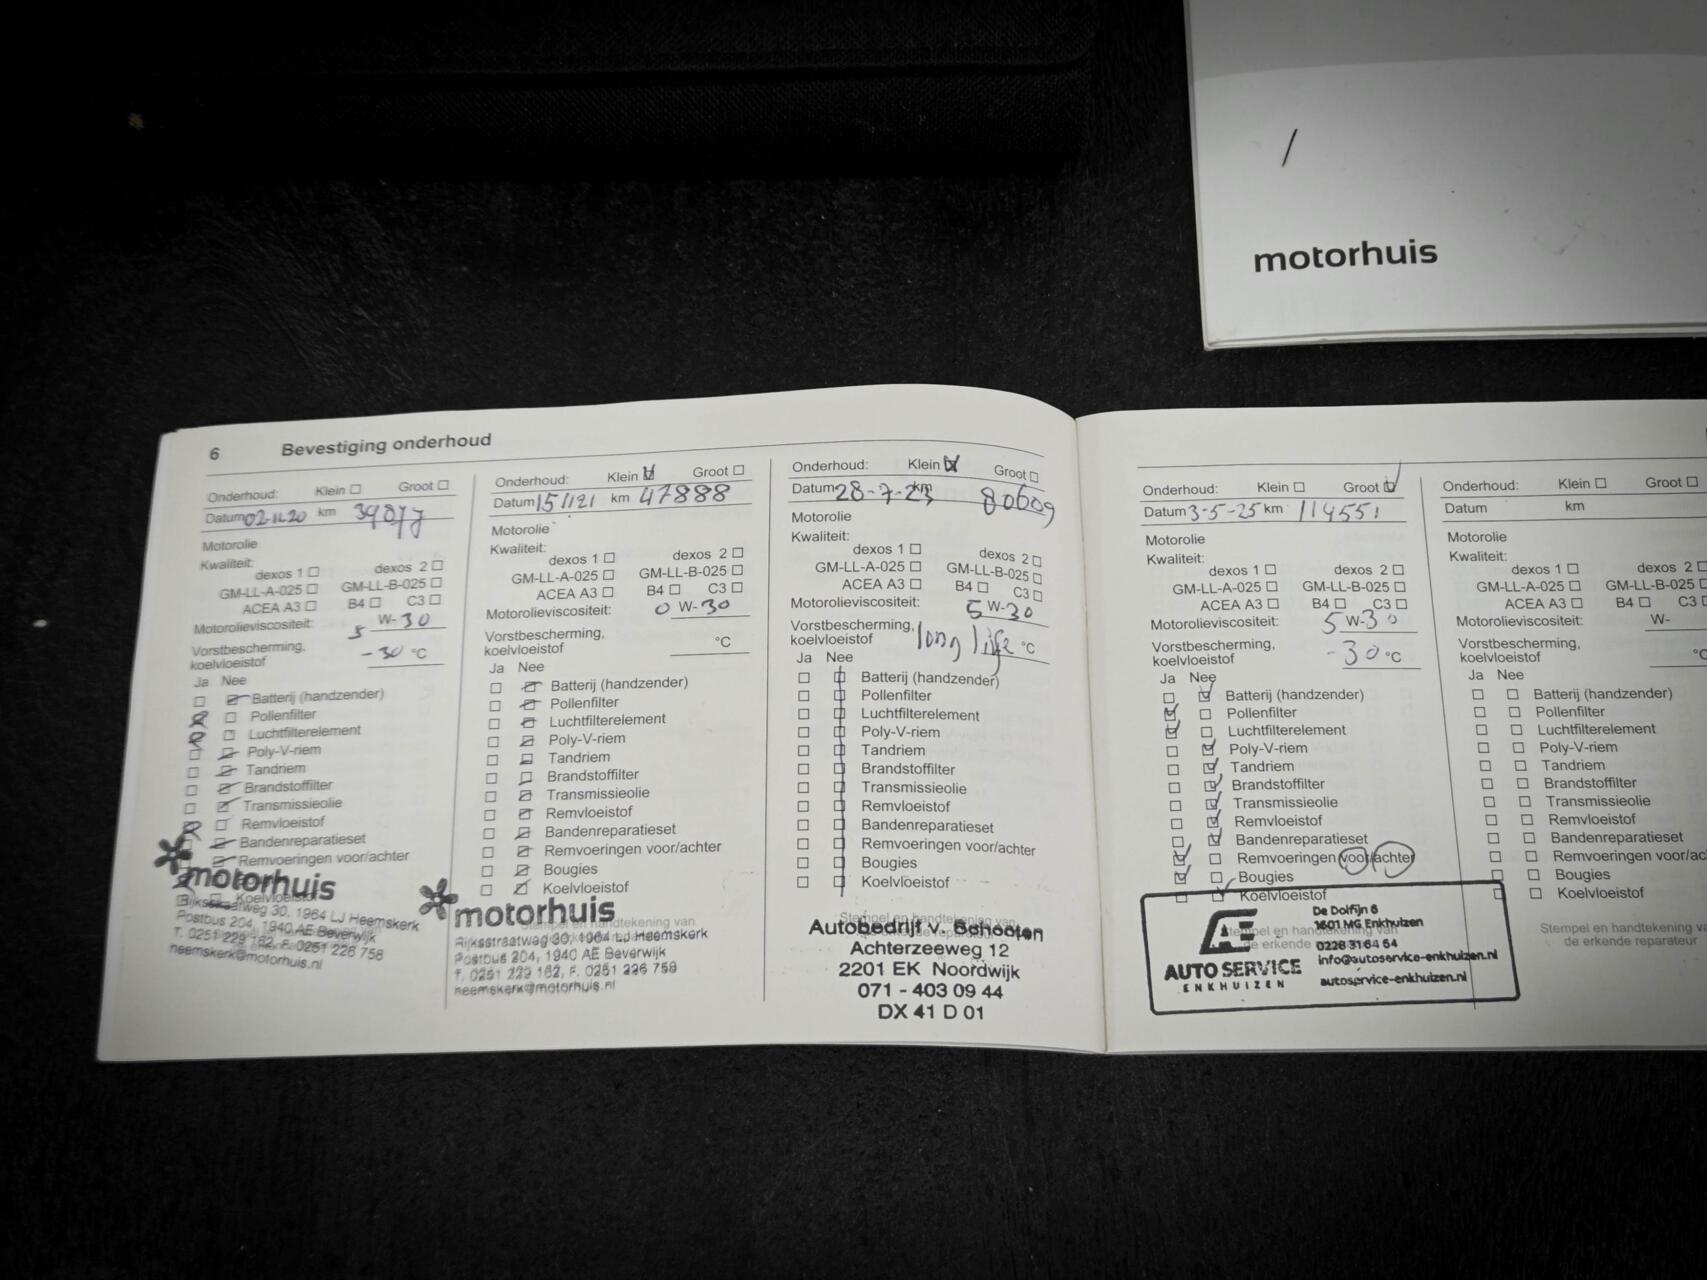 motorhuis
6 Bevestiging onderhoud
Onderhoud: Klein Groot
Datum 02-11-20 km
Motorolie
Kwaliteit:
dexos 1 dexos 2
GM-LL-A-025 GM-LL-B-025
ACEA A3 B4 C3
Motorolieviscositeit: 5 W-30
Vorstbescherming,
koelvloeistof -30 °C
Ja Nee
Batterij (handzender)
Pollenfilter
Luchtfilterelement
Poly-V-riem
Tandriem
Brandstoffilter
Transmissieolie
Remvloeistof
Bandenreparatieset
Remvoeringen voor/achter
Koelvloeistof
motorhuis
Rijksstraatweg 30, 1964 LJ Heemskerk
Postbus 204, 1940 AE Beverwijk
T. 0251 229 162, F. 0251 226 758
heemskerk@motorhuis.nl
Onderhoud: Klein Groot
Datum 15/1/21 km 47888
Motorolie
Kwaliteit:
dexos 1 dexos 2
GM-LL-A-025 GM-LL-B-025
ACEA A3 B4 C3
Motorolieviscositeit: 0 W-30
Vorstbescherming,
koelvloeistof °C
Ja Nee
Batterij (handzender)
Pollenfilter
Luchtfilterelement
Poly-V-riem
Tandriem
Brandstoffilter
Transmissieolie
Remvloeistof
Bandenreparatieset
Remvoeringen voor/achter
Bougies
Koelvloeistof
Stempel en handtekening van
motorhuis
Rijksstraatweg 30, 1964 LJ Heemskerk
Postbus 204, 1940 AE Beverwijk
T. 0251 229 162, F. 0251 226 758
heemskerk@motorhuis.nl
Onderhoud: Klein Groot
Datum 28-7-23 km 80609
Motorolie
Kwaliteit:
dexos 1 dexos 2
GM-LL-A-025 GM-LL-B-025
ACEA A3 B4 C3
Motorolieviscositeit: 5 W-30
Vorstbescherming,
koelvloeistof long life °C
Ja Nee
Batterij (handzender)
Pollenfilter
Luchtfilterelement
Poly-V-riem
Tandriem
Brandstoffilter
Transmissieolie
Remvloeistof
Bandenreparatieset
Remvoeringen voor/achter
Bougies
Koelvloeistof
Stempel en handtekening van
Autobedrijf v. Schooten
Achterzeeweg 12
2201 EK Noordwijk
071 - 403 09 44
DX 41 D 01
Onderhoud: Klein Groot
Datum 3-5-25 km 114551
Motorolie
Kwaliteit:
dexos 1 dexos 2
GM-LL-A-025 GM-LL-B-025
ACEA A3 B4 C3
Motorolieviscositeit: 5 W-30
Vorstbescherming,
koelvloeistof -30 °C
Ja Nee
Batterij (handzender)
Pollenfilter
Luchtfilterelement
Poly-V-riem
Tandriem
Brandstoffilter
Transmissieolie
Remvloeistof
Bandenreparatieset
Remvoeringen voor/achter
Bougies
Koelvloeistof
Stempel en handtekening van
de erkende
AUTO SERVICE
ENKHUIZEN
De Dolfijn 6
1601 MG Enkhuizen
0228 31 64 54
info@autoservice-enkhuizen.nl
autoservice-enkhuizen.nl
Onderhoud: Klein Groot
Datum km
Motorolie
Kwaliteit:
dexos 1 dexos 2
GM-LL-A-025 GM-LL-B-025
ACEA A3 B4 C3
Motorolieviscositeit: W-
Vorstbescherming,
koelvloeistof °C
Ja Nee
Batterij (handzender)
Pollenfilter
Luchtfilterelement
Poly-V-riem
Tandriem
Brandstoffilter
Transmissieolie
Remvloeistof
Bandenreparatieset
Remvoeringen voor/ac
Bougies
Koelvloeistof
Stempel en handtekening va
de erkende reparateur